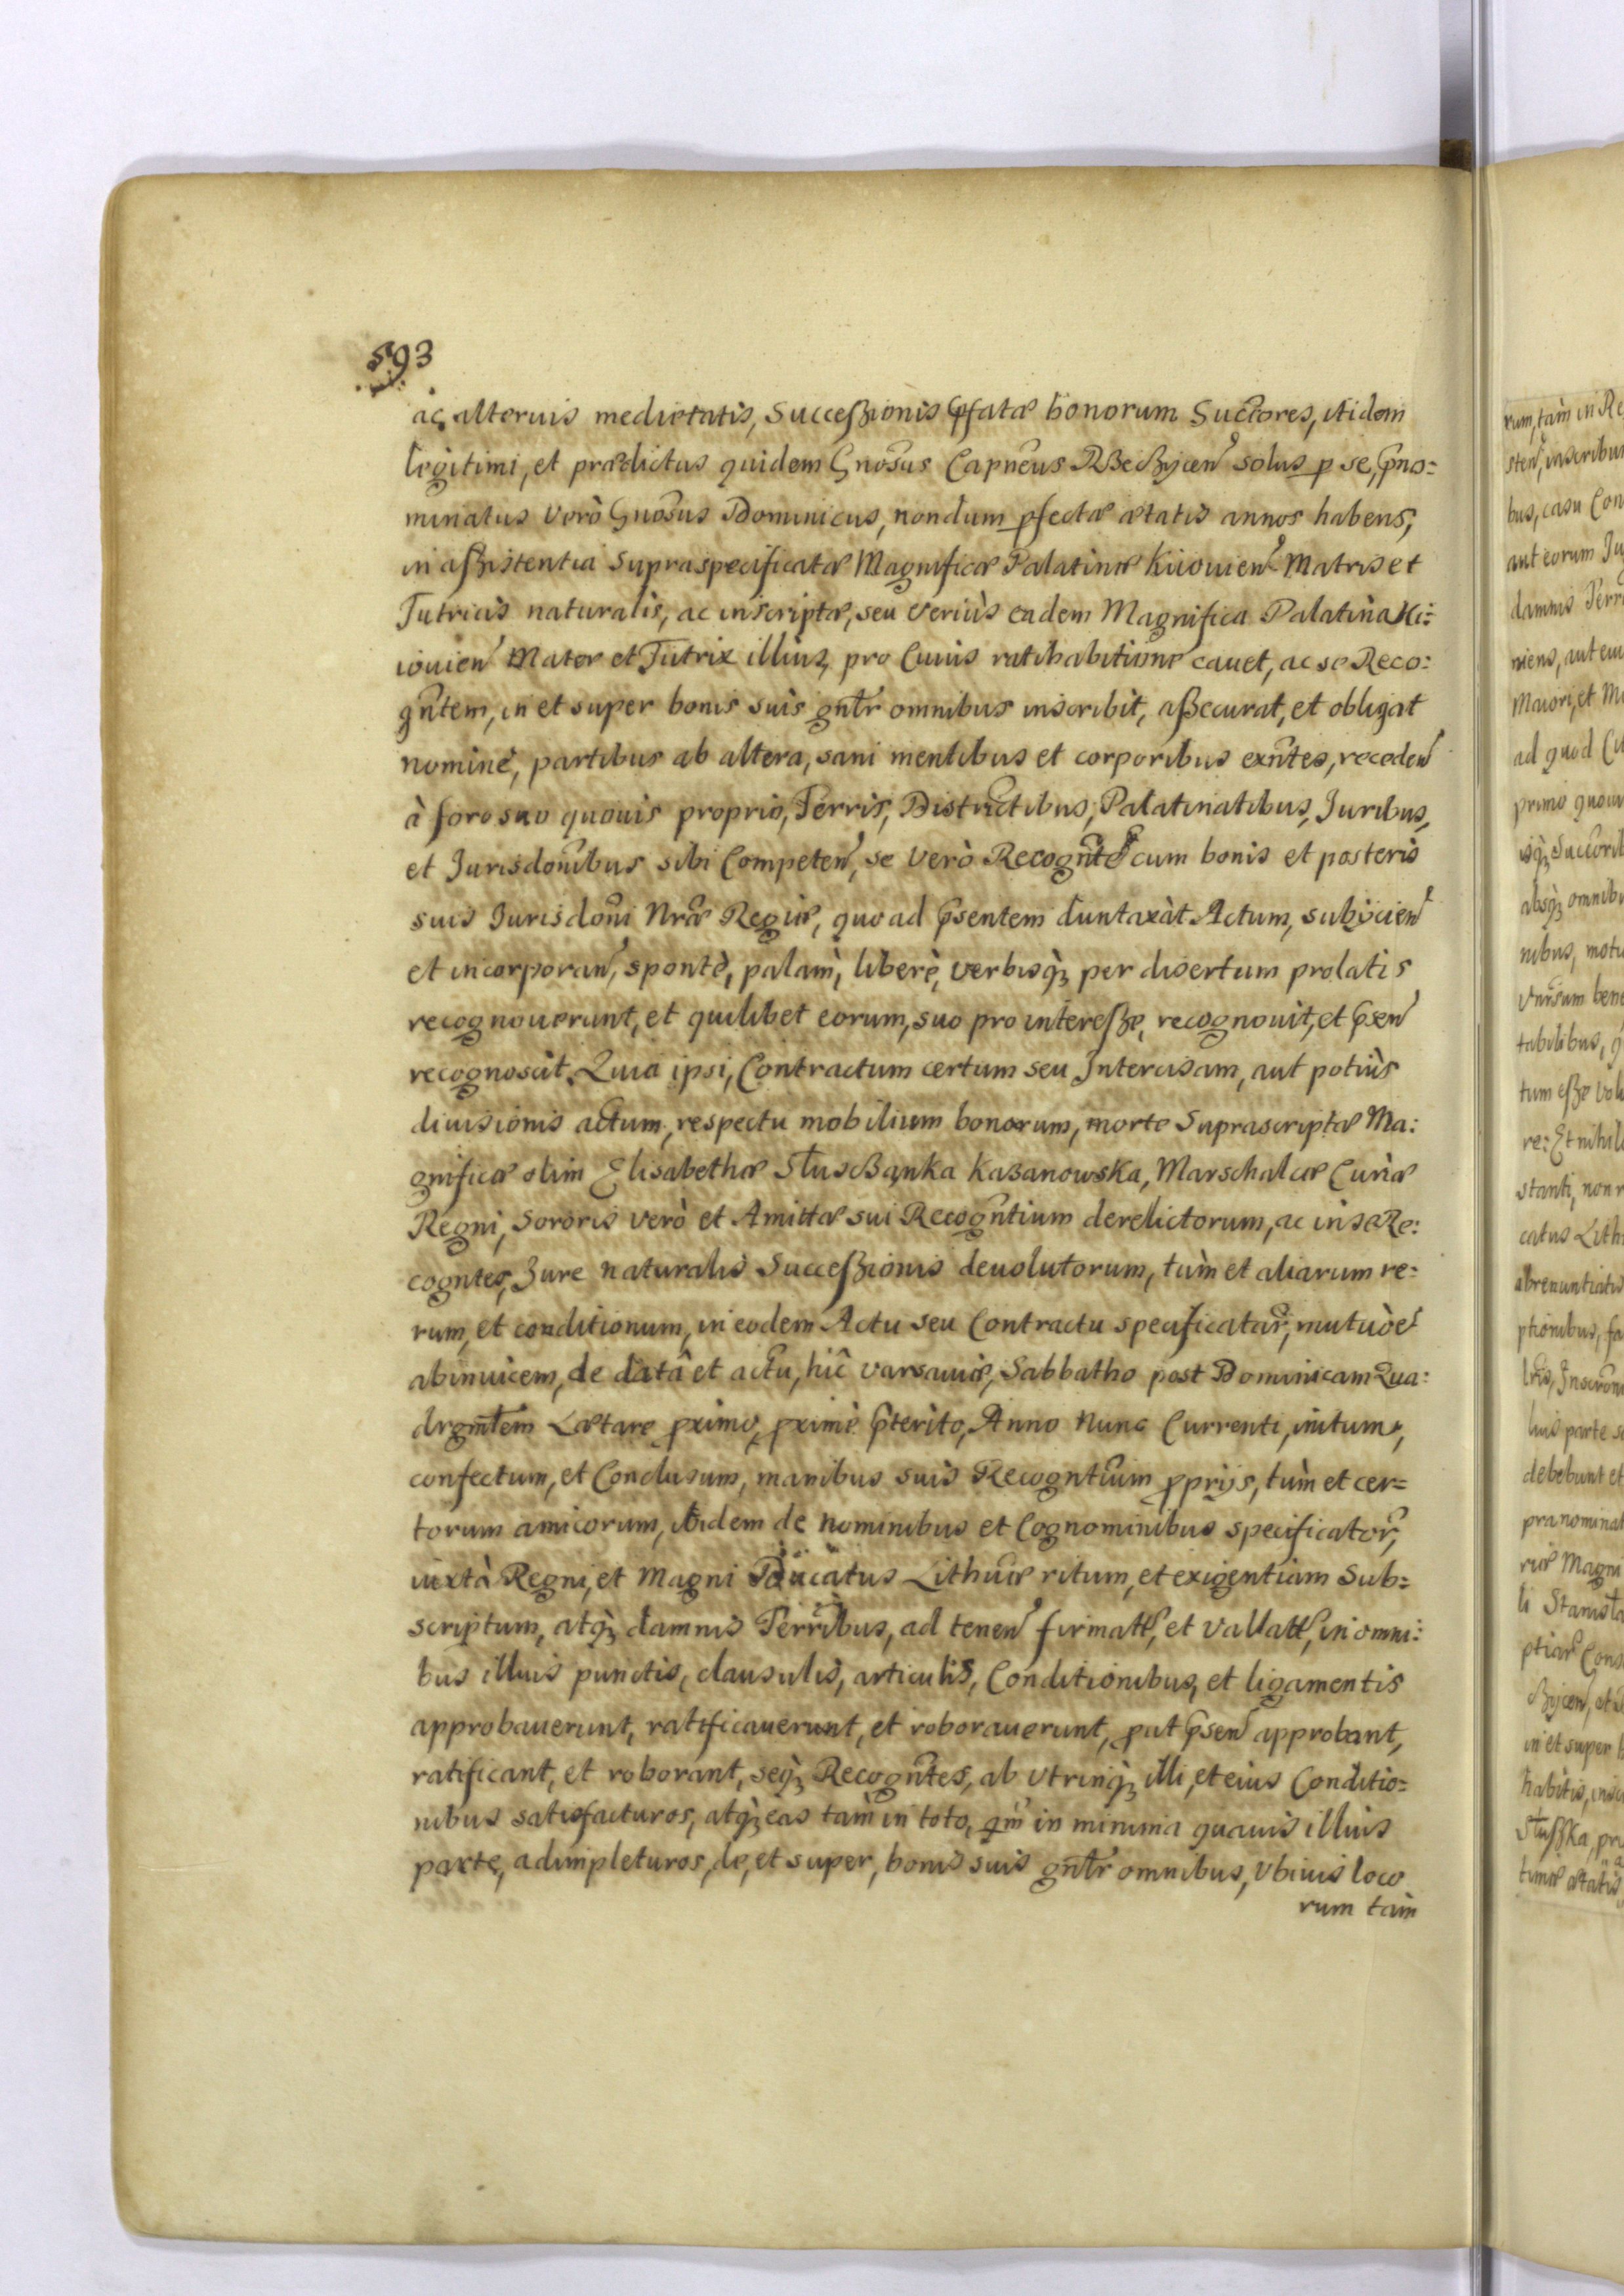 593
ac alteruis medietatis, Successionis pfatæ bonorum Succores, itidem
legitimi, et prædictus quidem Gnosus Capneus RBeczycen solus p se, pno=
minatus verò Gnosus Dominicus, nondum pfectæ ætatis annos habens,
in assistentia supraspecificatæ Magnificæ Palatinæ Kiiouien Matris et
Tutricis naturalis, ac inscriptæ, seu veriùs eadem Magnifica Palatina Ki:
iouien Mater et Tutrix illius, pro Cuius ratihabitione cauet, ac se Reco:
gntem, in et super bonis suis gntr omnibus inscribit, assecurat, et obligat
nomine, partibus ab altera, sani mentibus et corporibus exntes, receden
à foro suo quouis proprio, Terris, Districtibus, Palatinatibus, Juribus,
et Jurisdonibus sibi Competen, se verò Recognte cum bonis et posteris
suis Jurisdoni Nræ Regiæ, quo ad psentem duntaxàt Actum, subijcien
et incorporan, spontè, palam, liberè, verbisq per disertum prolatis
recognouerunt, et quilibet eorum, suo pro interesse, recognouit, et psen
recognoscit. Quia ipsi, Contractum certum seu Intercisam, aut potiùs
diuisionis actum, respectu mobilium bonorum, morte Suprascriptæ Ma:
gnificæ olim Elisabethæ Słuszanka Kazanowska, Marschalcæ Curiæ
Regni, Sororis verò et Amittæ sui Recogntium derelictorum, ac in se Re:
cogntes, Jure naturalis Successionis deuolutorum, tùm et aliarum re:
rum, et conditionum, in eodem Actu seu Contractu specificatar, mutuò e
abinuicem, de datâ et actu, hîc varsauiæ, Sabbatho post Dominicam Qua:
drgmlem Lætare pximo, pximè pterito, Anno nunc Currenti, initum,
confectum, et Conclusum, manibus suis Recogntium pprijs, tùm et cer=
torum amicorum, ibidem de nominibus et Cognominibus specificator,
iuxtà Regni, et Magni Ducatus Lithuæ ritum, et exigentiam Sub=
scriptum, atq damnis Terribus, ad tenen firmatt, et vallatt, in omni:
bus illius punctis, clausulis, articulis, Conditionibus, et ligamentis
approbauerunt, ratificauerunt, et roborauerunt, put psen approbant,
ratificant, et roborant, seq Recogntes, ab vtrinq illi, et eius Conditio=
nibus satisfacturos, atq eas tàm in toto, qm in minima quauis illius
parte, adimpleturos, de, et super, bonis suis gntr omnibus, vbiuis loco
rum tàm